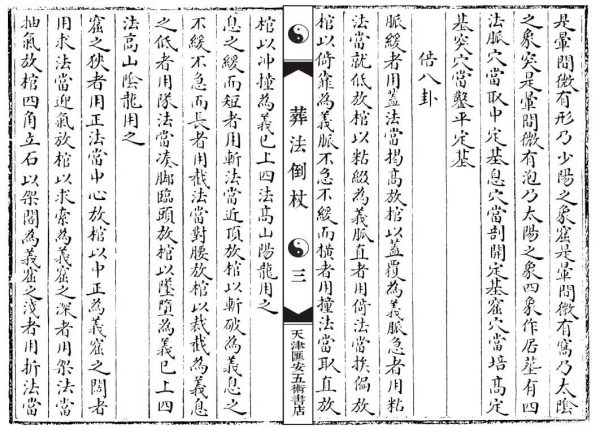 是暈間微有形乃少陽之象窟是暈間微有窩乃太陰
之象突是暈間微有泡乃太陽之象四象作居基有四
法脈穴當取中定基息穴當剖開定基窟穴當培高定
基突穴當鑿平定基
倍八卦
脈緩者用蓋法當揭高放棺以蓋覆為義脈急者用粘
法當就低放棺以粘綴為義脈直者用倚法當挨偏放
棺以倚靠為義脈不急不緩而橫者用撞法當取直放
葬法倒杖
三
天津匯安五術書店
棺以冲撞為義已上四法高山陽龍用之
息之緩而短者用斬法當近頂放棺以斬破為義息之
不緩不急而長者用截法當對腰放棺以裁截為義息
之低者用隊法當湊脚臨頭放棺以墜墮為義已上四
法高山陰龍用之
窟之狹者用正法當中心放棺以中正為義窟之闊者
用求法當迎氣放棺以求索為義窟之深者用架法當
抽氣放棺四角立石以架閣為義窟之淺者用折法當